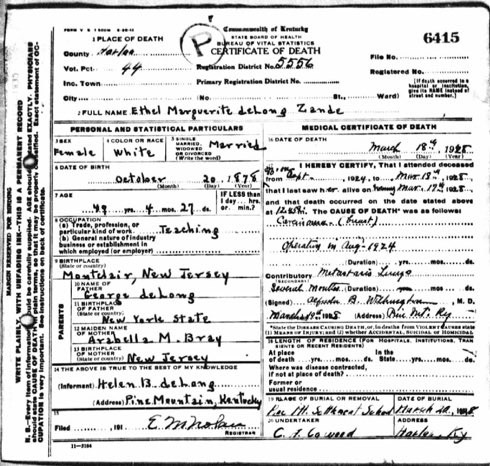 Commonwealth of Kentucky
STATE BOARD OF HEALTH
BUREAU OF VITAL STATISTICS
CERTIFICATE OF DEATH
6415
1 PLACE OF DEATH
County Harlan
Vot. Pct 44
Registration District No. 5556
File No.
Inc. Town
Primary Registration District No.
Registered No.
City
(No.
St.,
Ward)
(If death occurred in a hospital or institution, give its NAME instead of street and number.)
2 FULL NAME Ethel Marguerite deLong Zande
PERSONAL AND STATISTICAL PARTICULARS
3 SEX
Female
4 COLOR OR RACE
White
5 SINGLE MARRIED, WIDOWED OR DIVORCED (Write the word)
Married
6 DATE OF BIRTH
October 20 1878
(Month) (Day) (Year)
7 AGE
49 yrs. 4 mos. 27 ds.
IF LESS than 1 day... hrs. or min.?
8 OCCUPATION
(a) Trade, profession, or particular kind of work
Teaching
(b) General nature of industry business or establishment in which employed (or employer)
9 BIRTHPLACE
(State or country)
Montclair, New Jersey
PARENTS
10 NAME OF FATHER
George deLong
11 BIRTHPLACE OF FATHER
(State or country)
New York State
12 MAIDEN NAME OF MOTHER
Arabella M. Bray
13 BIRTHPLACE OF MOTHER
(State or country)
New Jersey
14 THE ABOVE IS TRUE TO THE BEST OF MY KNOWLEDGE
(Informant) Helen B. deLong
(Address) Pine Mountain, Kentucky
15
Filed 191
REGISTRAR
11-3184
MEDICAL CERTIFICATE OF DEATH
16 DATE OF DEATH
March 18th, 1928
(Month) (Day) (Year)
17 I HEREBY CERTIFY, That I attended deceased
from Sept 1924, to Mar. 18th, 1928,
that I last saw her alive on Mar. 17th, 1928,
and that death occurred on the date stated above
at m. The CAUSE OF DEATH* was as follows:
Carcinoma (Breast)
Operation in Aug-1924
(Duration) yrs. mos. ds.
Contributory Metastasis Lungs
(Secondary)
Several months (Duration) yrs. mos. ds.
(Signed) M. D.
March 19th, 1928 (Address) Pine Mt. Ky
*State the DISEASE CAUSING DEATH, or, in deaths from VIOLENT CAUSES state (1) MEANS OF INJURY; and (2) whether ACCIDENTAL, SUICIDAL or HOMICIDAL.
18 LENGTH OF RESIDENCE (FOR HOSPITALS, INSTITUTIONS, TRANSIENTS OR RECENT RESIDENTS)
At place of death yrs. mos. ds. In the State yrs. mos. ds.
Where was disease contracted, if not at place of death?
Former or usual residence
19 PLACE OF BURIAL OR REMOVAL
Pine Mt. School
DATE OF BURIAL
March 20, 1928
20 UNDERTAKER
ADDRESS
Harlan, Ky
MARGIN RESERVED FOR BINDING
WRITE PLAINLY, WITH UNFADING INK—THIS IS A PERMANENT RECORD